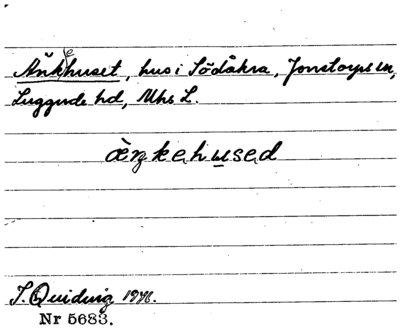 Änkehuset, hus i Södåkra, Jonstorps sn,
Luggude hd, Mhs L.
ànkehused
T. Quidwig 1946.
Nr 5683.